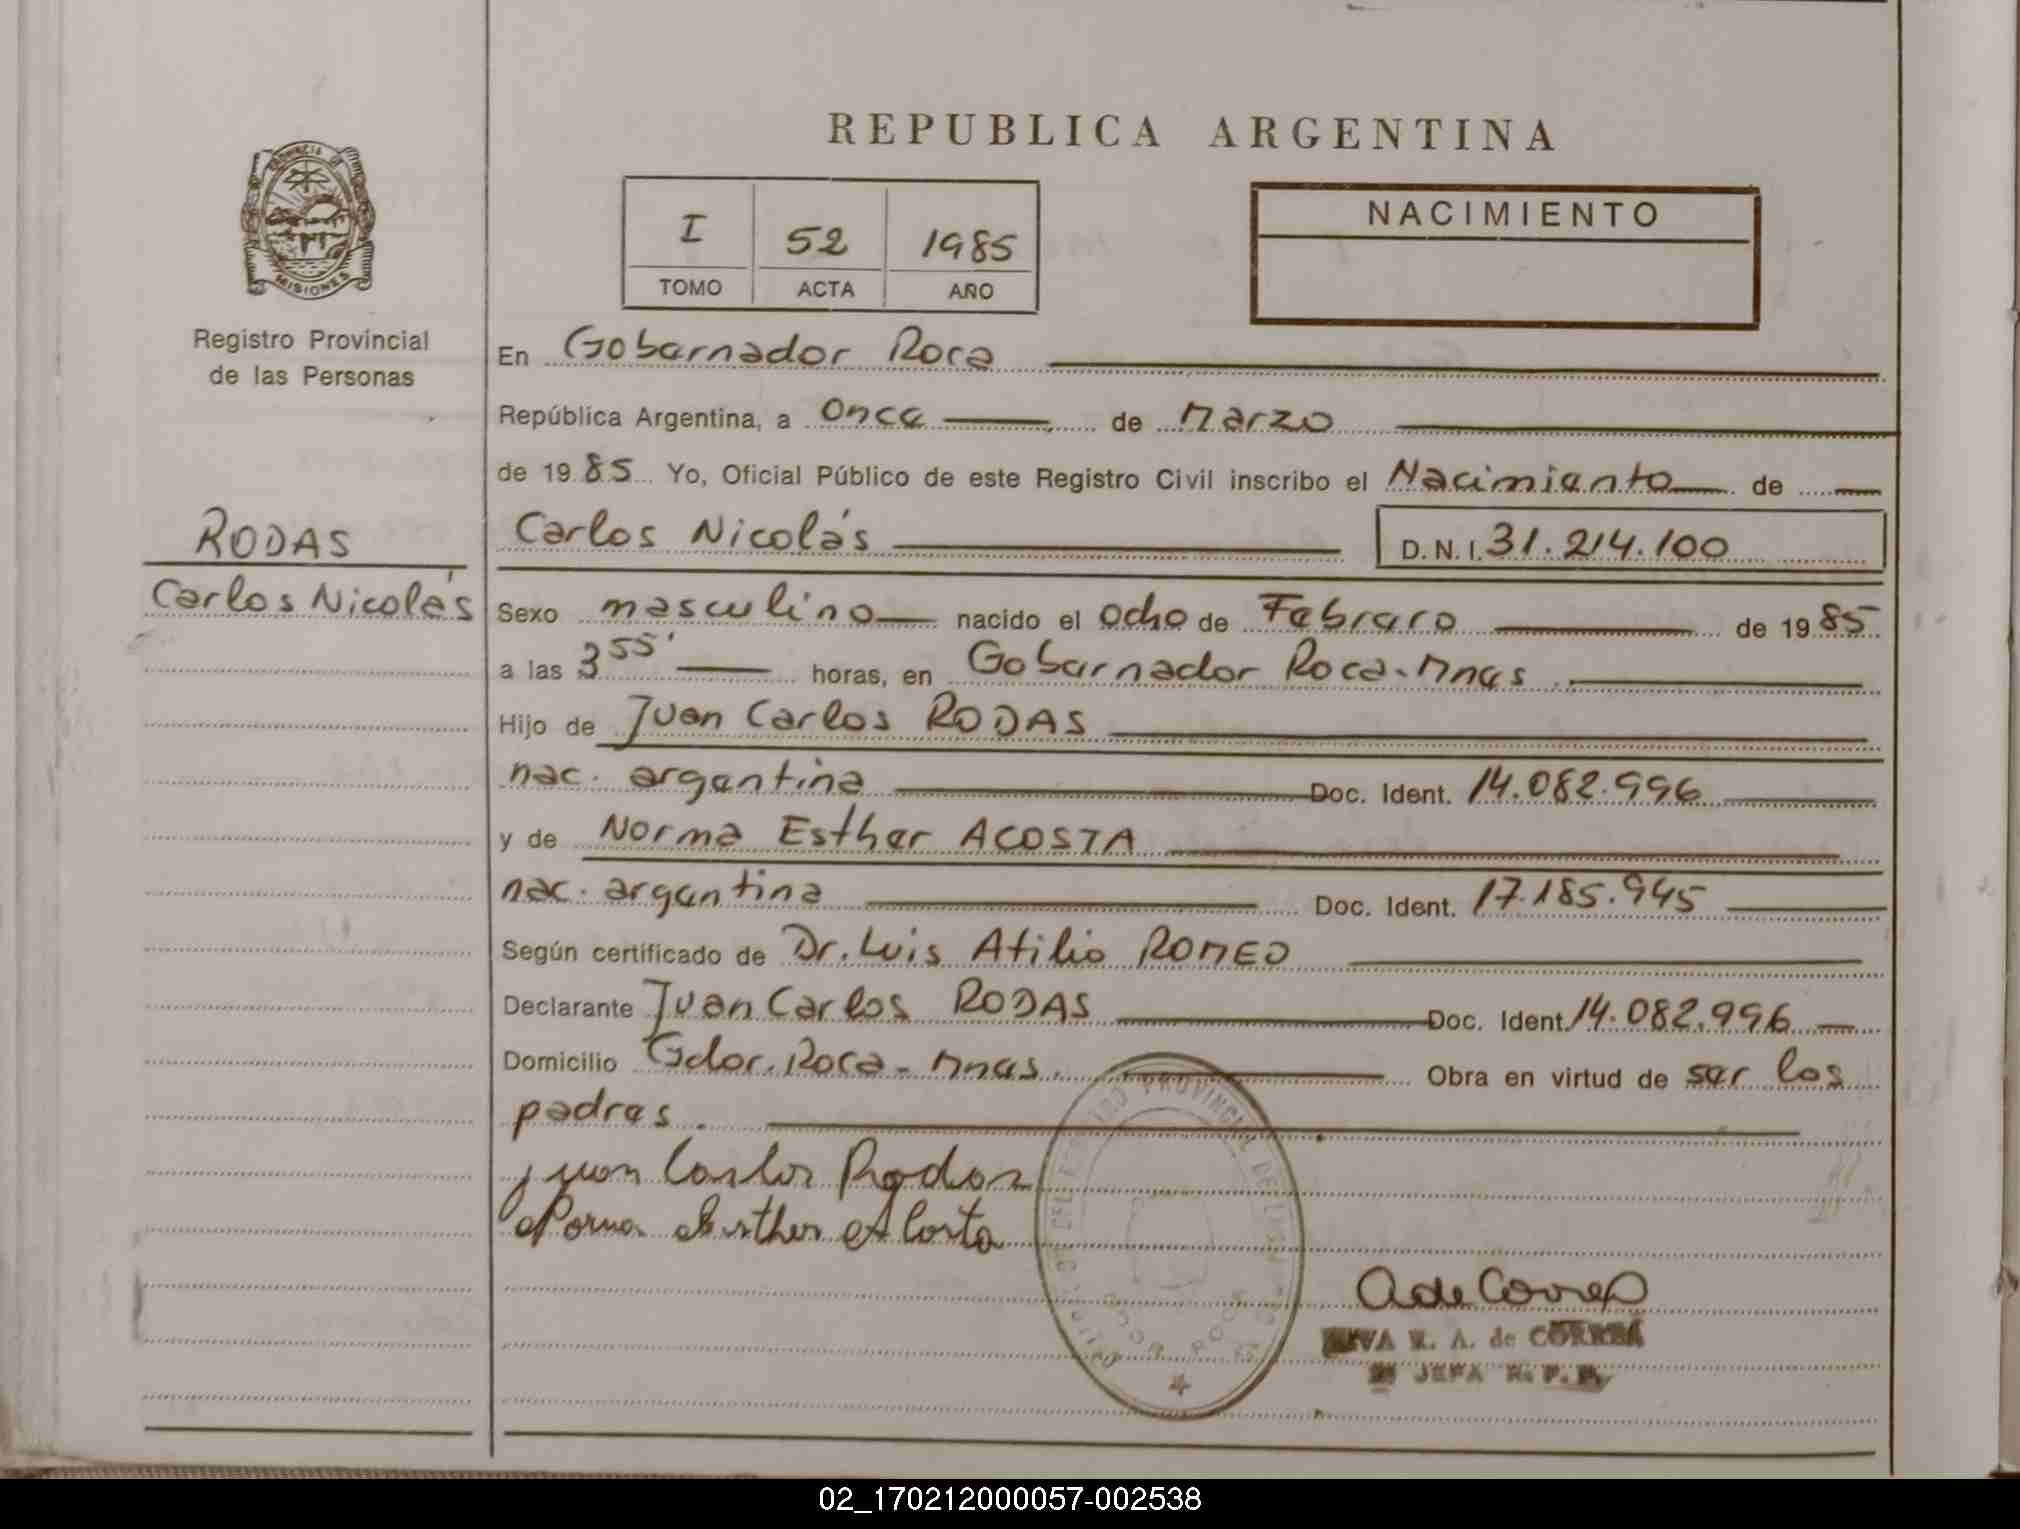 REPUBLICA ARGENTINA
PROVINCIA DE
MISIONES
Registro Provincial
de las Personas
I 52 1985
TOMO ACTA AÑO
NACIMIENTO
En Gobernador Roca
República Argentina, a once de Marzo
de 1985 Yo, Oficial Público de este Registro Civil inscribo el Nacimiento de
RODAS
Carlos Nicolás
Carlos Nicolás D.N.I. 31.214.100
Sexo masculino nacido el ocho de Febrero de 1985
a las 3 55' horas, en Gobernador Roca-Mnes
Hijo de Juan Carlos RODAS
nac. argentina Doc. Ident. 14.082.996
y de Norma Esther ACOSTA
nac. argentina Doc. Ident. 17.185.945
Según certificado de Dr. Luis Atilio ROMEO
Declarante Juan Carlos RODAS Doc. Ident. 14.082.996
Domicilio Gdor. Roca - Mnes. Obra en virtud de ser los
padres.
Juan Carlos Rodas
Norma Esther Acosta
PROVINCIAL DE LAS
ROCA
A de Correa
A. de CORREA
JEFA R. P. P.
02_170212000057-002538